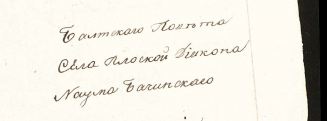 Балтскаго Повѣта
Села Плоской Діакона
Наума Бачинскаго